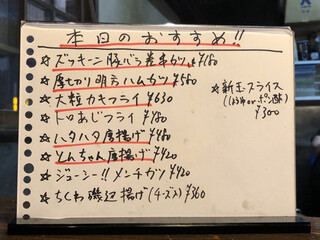 本日のおすすめ!!
☆ズッキーニ豚バラ巻串カツ ¥180
☆厚切り明方ハムカツ ¥580
☆大粒カキフライ ¥630
☆トロあじフライ ¥180
☆ハタハタ唐揚げ ¥480
☆とんちゃん唐揚げ ¥420
☆ジューシー!!メンチカツ ¥420
☆ちくわ磯辺揚げ(チーズ入) ¥360
☆新玉スライス
¥300